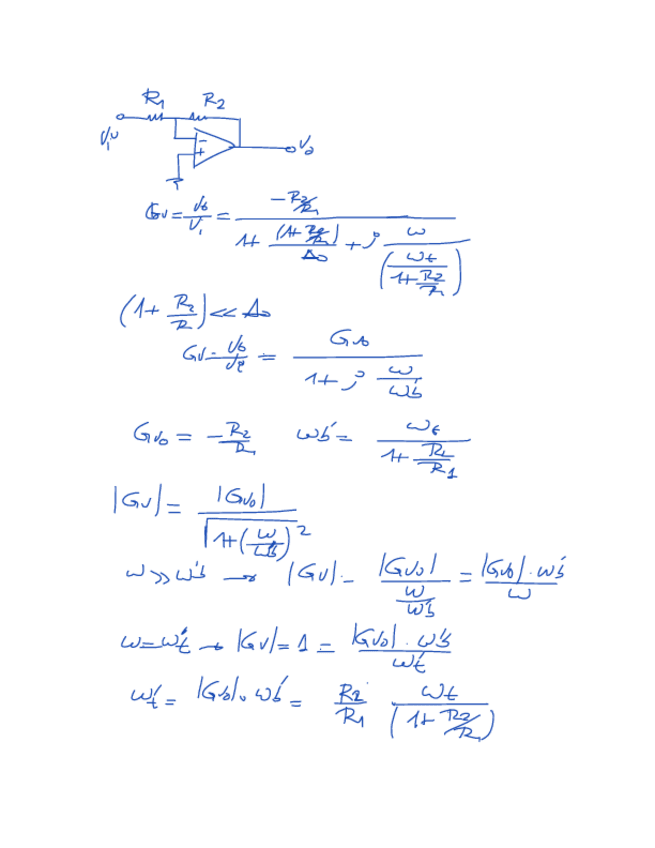 R1 R2
Vi Vo
- +
Gv = Vo/Vi = (-R2/R1) / (1 + (1+R2/R1)/Ao + j ω/(ωt/(1+R2/R1)))
(1 + R2/R1) << Ao
Gv = Vo/Vi = Gvo / (1 + j ω/ωb')
Gvo = -R2/R1 ωb' = ωt / (1 + R2/R1)
|Gv| = |Gvo| / √(1+(ω/ωb')^2)
ω >> ωb' → |Gv| = |Gvo| / (ω/ωb') = |Gvo|·ωb' / ω
ω = ωt' → |Gv| = 1 = |Gvo|·ωb' / ωt'
ωt' = |Gvo|·ωb' = R2/R1 ωt/(1+R2/R1)